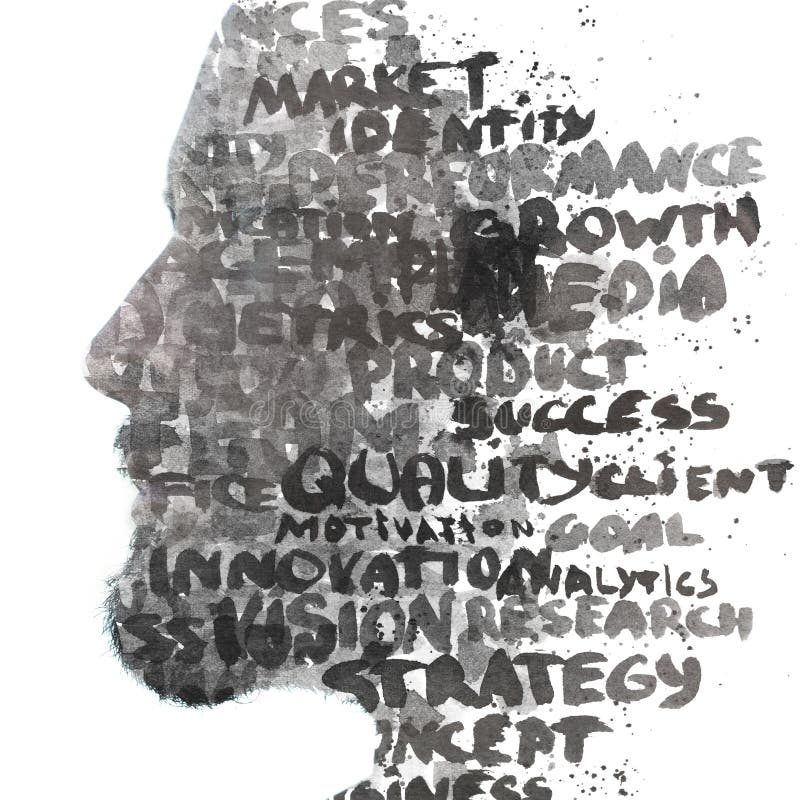 NCES
MARKET
IDENTITY
PERFORMANCE
GROWTH
PLAN MEDIA
METRICS
PRODUCT
SUCCESS
FICE QUALITY CLIENT
MOTIVATION GOAL
INNOVATION ANALYTICS
VISION RESEARCH
STRATEGY
ONCEPT
SINESS
dreamstime